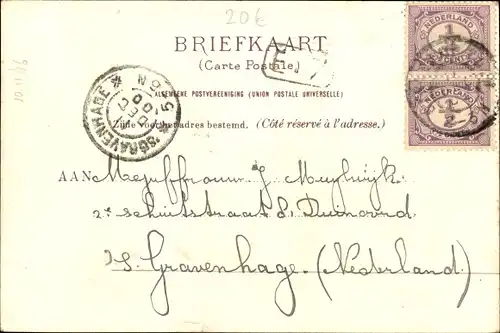 20€
BRIEFKAART
(Carte Postale)
ALGEMEENE POSTVEREENIGING (UNION POSTALE UNIVERSELLE)
Zijde voor het adres bestemd. (Côté réservé à l'adresse.)
NEDERLAND
1/2
CENT
NEDERLAND
1/2
'SGRAVENHAGE
DEC
00
5-6N
AAN Mejuffrouw J Muijlwijk
2e schuitstraat 81 Duinoord
's Gravenhage. (Nederland)